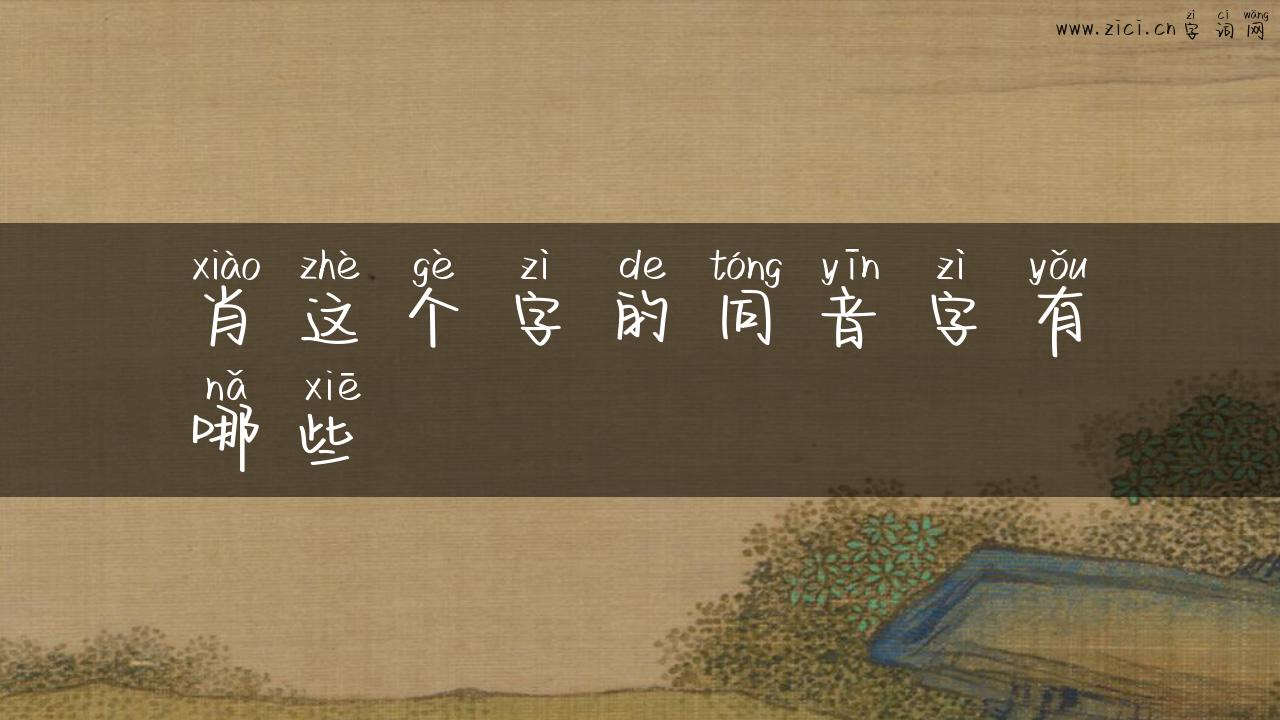 zì cí wǎng
www.zici.cn 字词网
xiào zhè gè zì de tóng yīn zì yǒu
肖这个字的同音字有
nǎ xiē
哪些